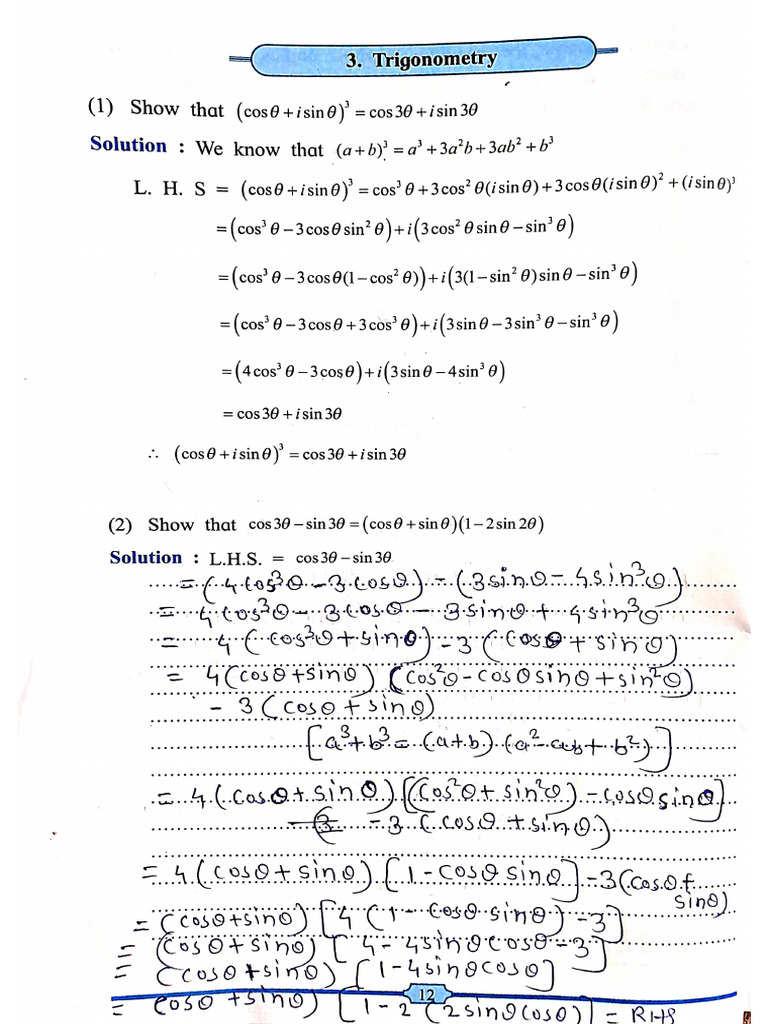 3. Trigonometry
(1) Show that (cosθ + i sinθ)³ = cos3θ + i sin3θ
Solution : We know that (a + b)³ = a³ + 3a²b + 3ab² + b³
L. H. S = (cosθ + i sinθ)³ = cos³θ + 3cos²θ(i sinθ) + 3cosθ(i sinθ)² + (i sinθ)³
= (cos³θ − 3cosθ sin²θ) + i(3cos²θ sinθ − sin³θ)
= (cos³θ − 3cosθ(1 − cos²θ)) + i(3(1 − sin²θ)sinθ − sin³θ)
= (cos³θ − 3cosθ + 3cos³θ) + i(3sinθ − 3sin³θ − sin³θ)
= (4cos³θ − 3cosθ) + i(3sinθ − 4sin³θ)
= cos3θ + i sin3θ
∴ (cosθ + i sinθ)³ = cos3θ + i sin3θ
(2) Show that cos3θ − sin3θ = (cosθ + sinθ)(1 − 2sin2θ)
Solution : L.H.S. = cos3θ − sin3θ
= (4cos³θ − 3cosθ) − (3sinθ − 4sin³θ)
= 4cos³θ − 3cosθ − 3sinθ + 4sin³θ
= 4(cos³θ + sinθ) − 3(cosθ + sinθ)
= 4(cosθ + sinθ) (cos²θ − cosθsinθ + sin²θ)
− 3(cosθ + sinθ)
[a³ + b³ = (a+b) (a² − ab + b²)]
= 4(cosθ + sinθ) [(cos²θ + sin²θ) − cosθ sinθ]
− 3(cosθ + sinθ)
= 4(cosθ + sinθ) [1 − cosθ sinθ] − 3(cosθ +
sinθ)
= (cosθ + sinθ) [4(1 − cosθ sinθ) − 3]
= (cosθ + sinθ) [4 − 4sinθcosθ − 3]
= (cosθ + sinθ) [1 − 4sinθcosθ]
= (cosθ + sinθ) [1 − 2(2sinθcosθ)] = RHS
12